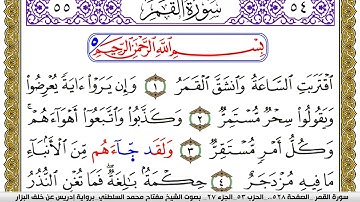 ٥٥ سُورَةُ القَمَر ٥٤
بِسْمِ اللَّهِ الرَّحْمَٰنِ الرَّحِيمِ
اقْتَرَبَتِ السَّاعَةُ وَانشَقَّ الْقَمَرُ ١ وَإِن يَرَوْا ءَايَةً يُعْرِضُوا
وَيَقُولُوا سِحْرٌ مُّسْتَمِرٌّ ٢ وَكَذَّبُوا وَاتَّبَعُوا أَهْوَاءَهُمْ
وَكُلُّ أَمْرٍ مُّسْتَقِرٌّ ٣ وَلَقَدْ جَاءَهُم مِّنَ الْأَنۢبَاءِ
مَا فِيهِ مُزْدَجَرٌ ٤ حِكْمَةٌ بَالِغَةٌ فَمَا تُغْنِ النُّذُرُ
سورة القمر . الصفحة ٥٢٨... الحزب ٥٣ . الجزء ٢٧ . بصوت الشيخ مفتاح محمد السلطني . برواية إدريس عن خلف البزار